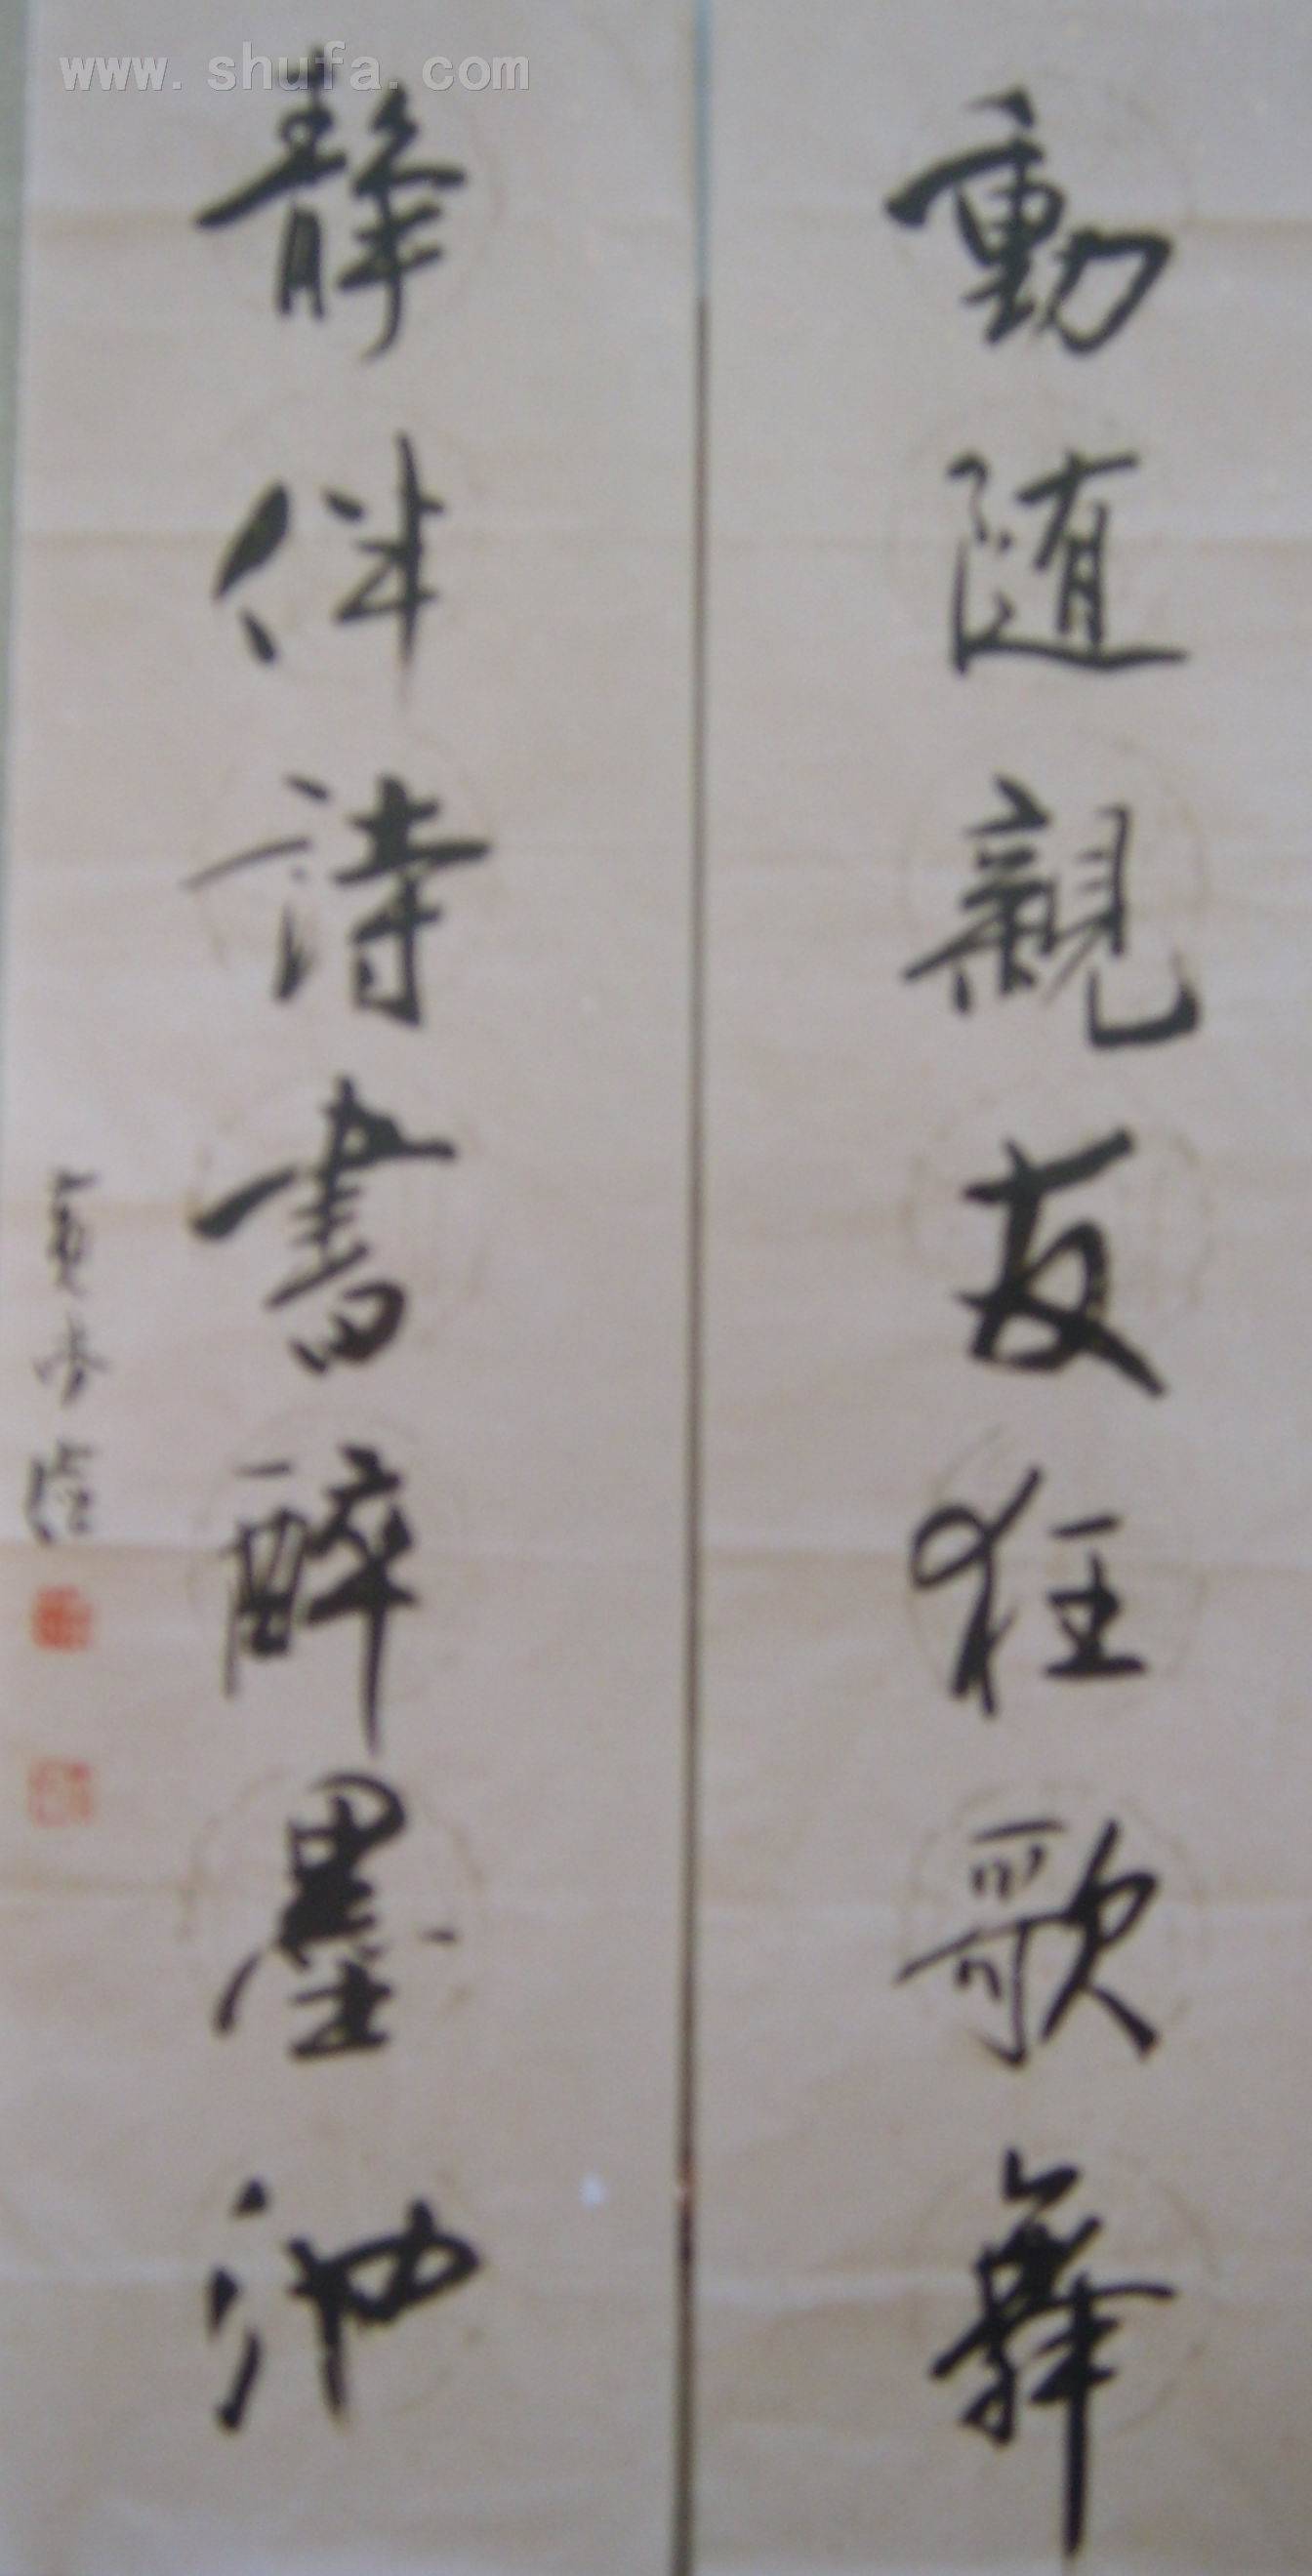 www.shufa.com
動随親友狂歌舞
静伴詩書醉墨池